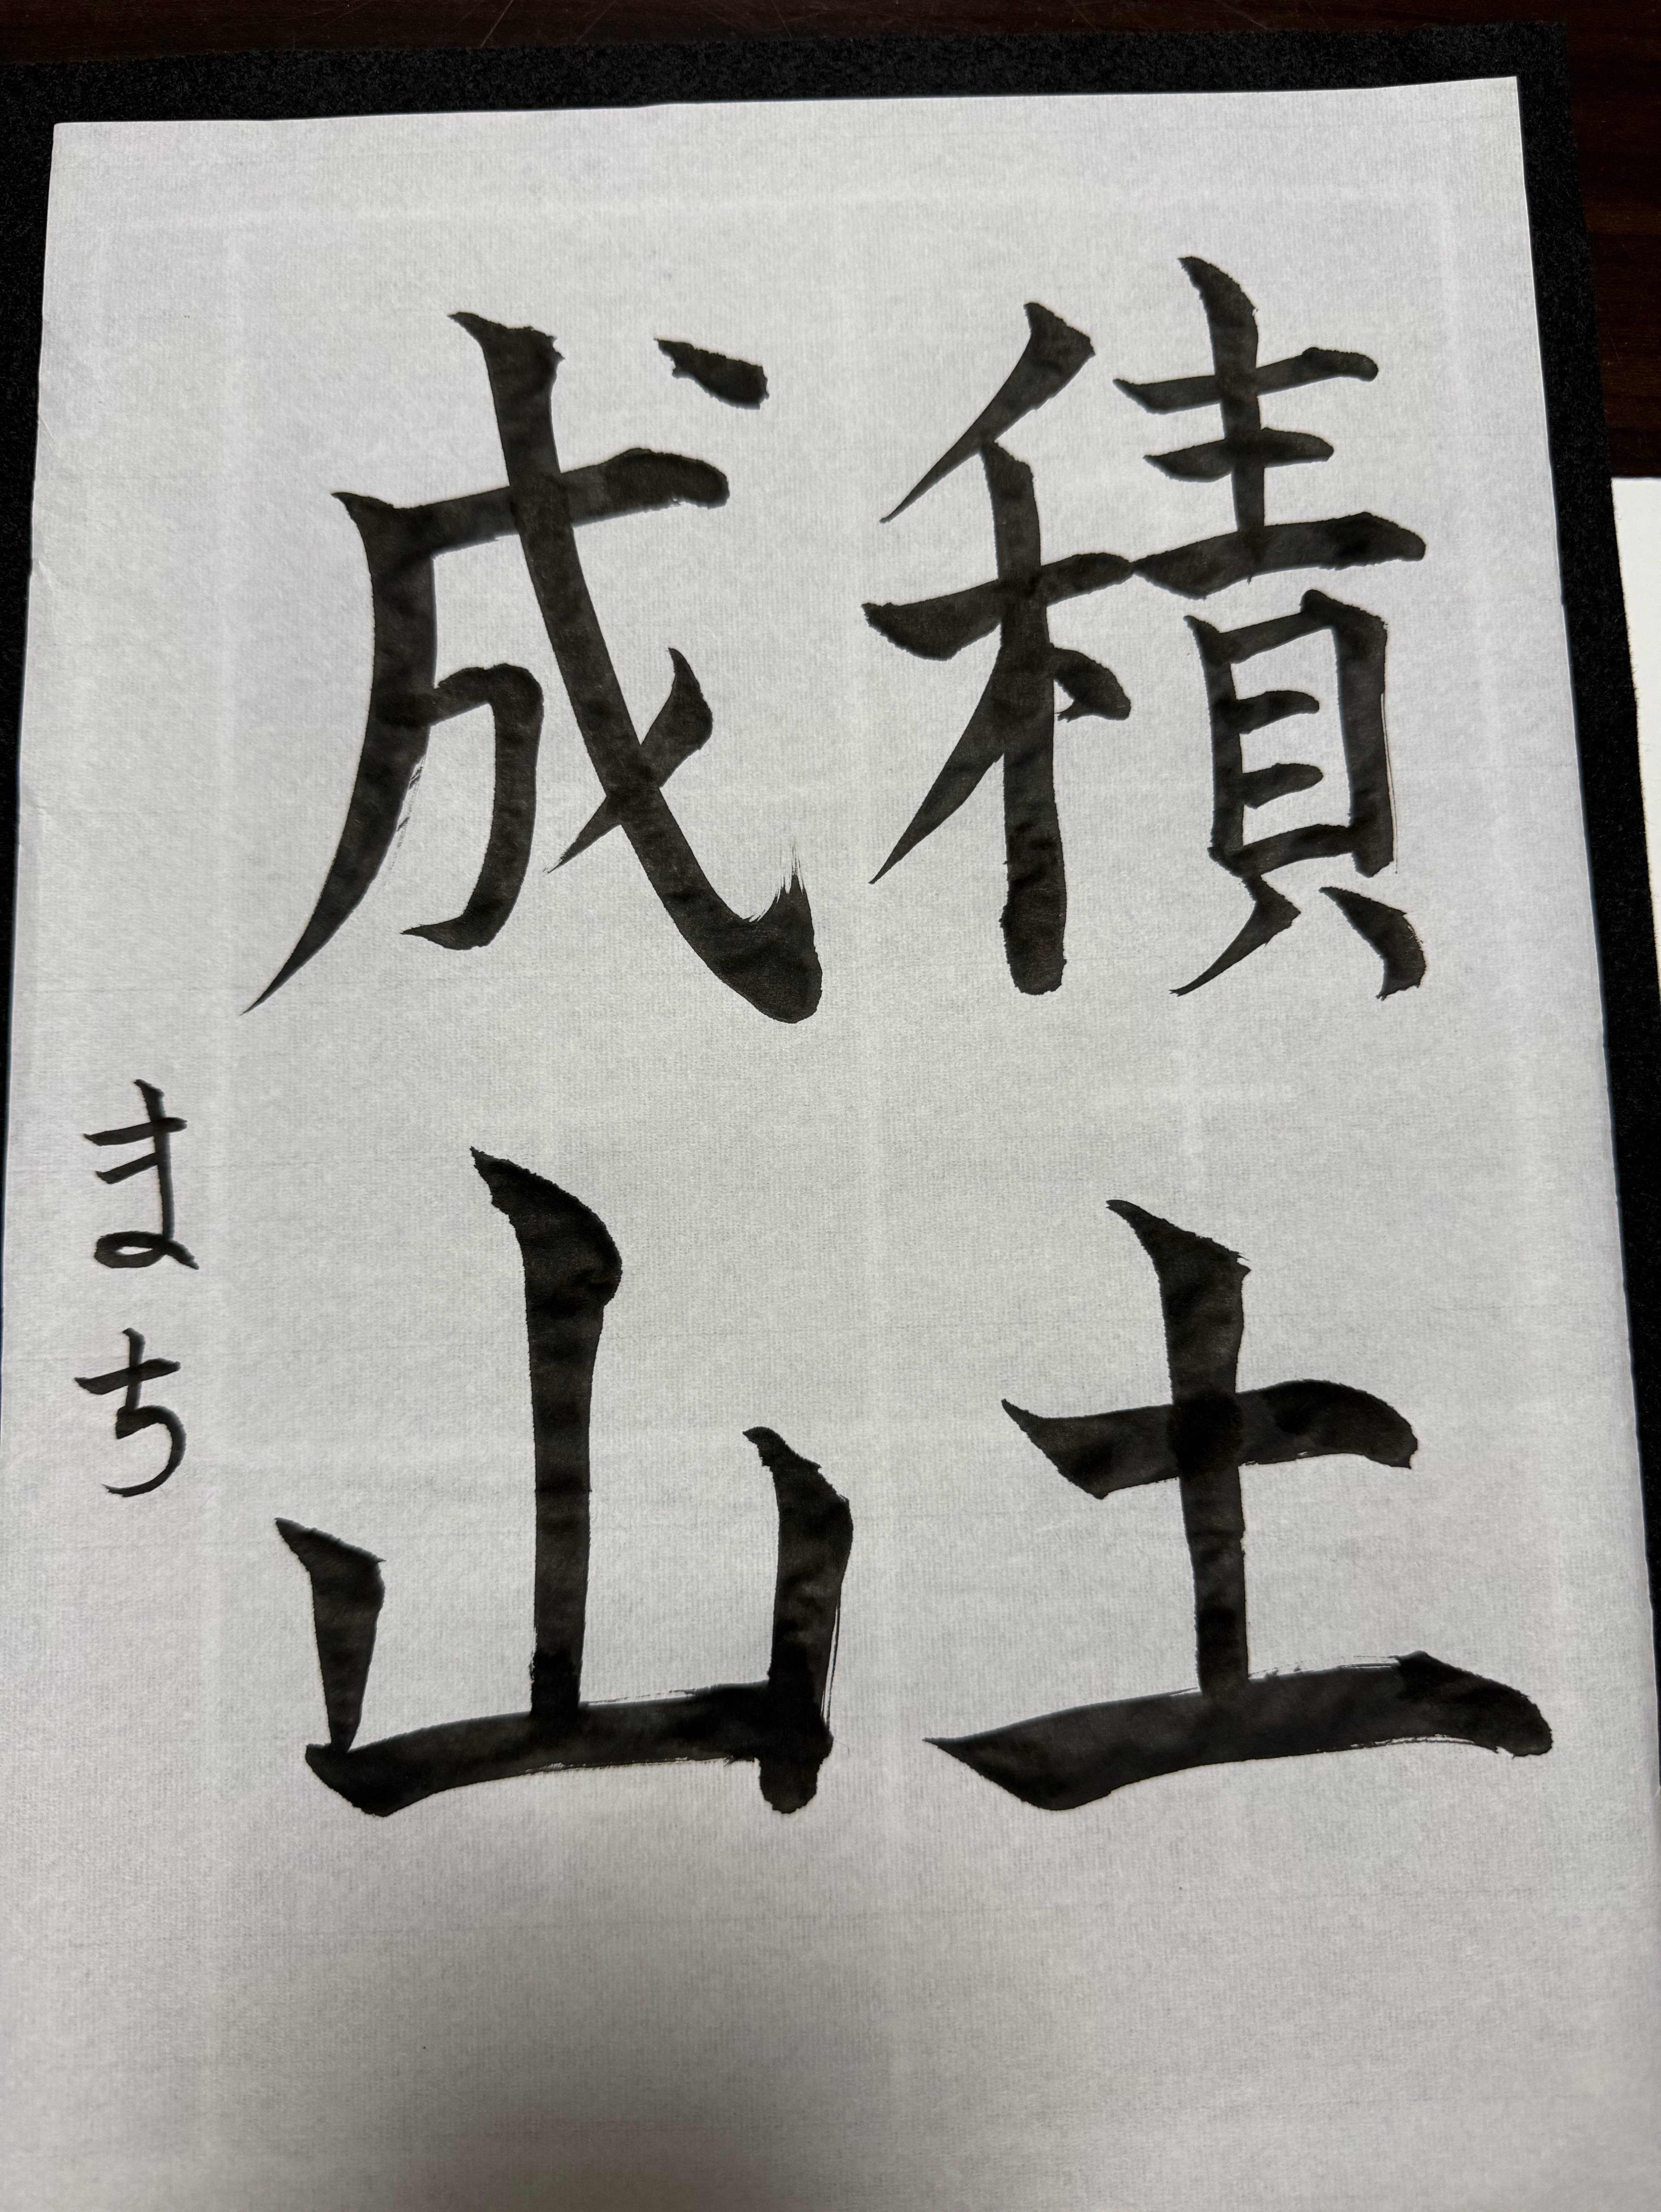 積土
成山
まち